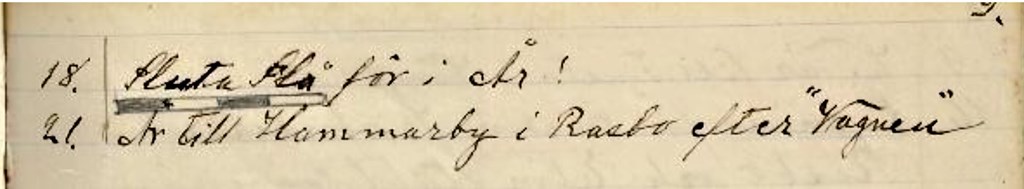 9.
18. Sluta Slå för i År!
21. Är till Hammarby i Rasbo efter "Vagnen"